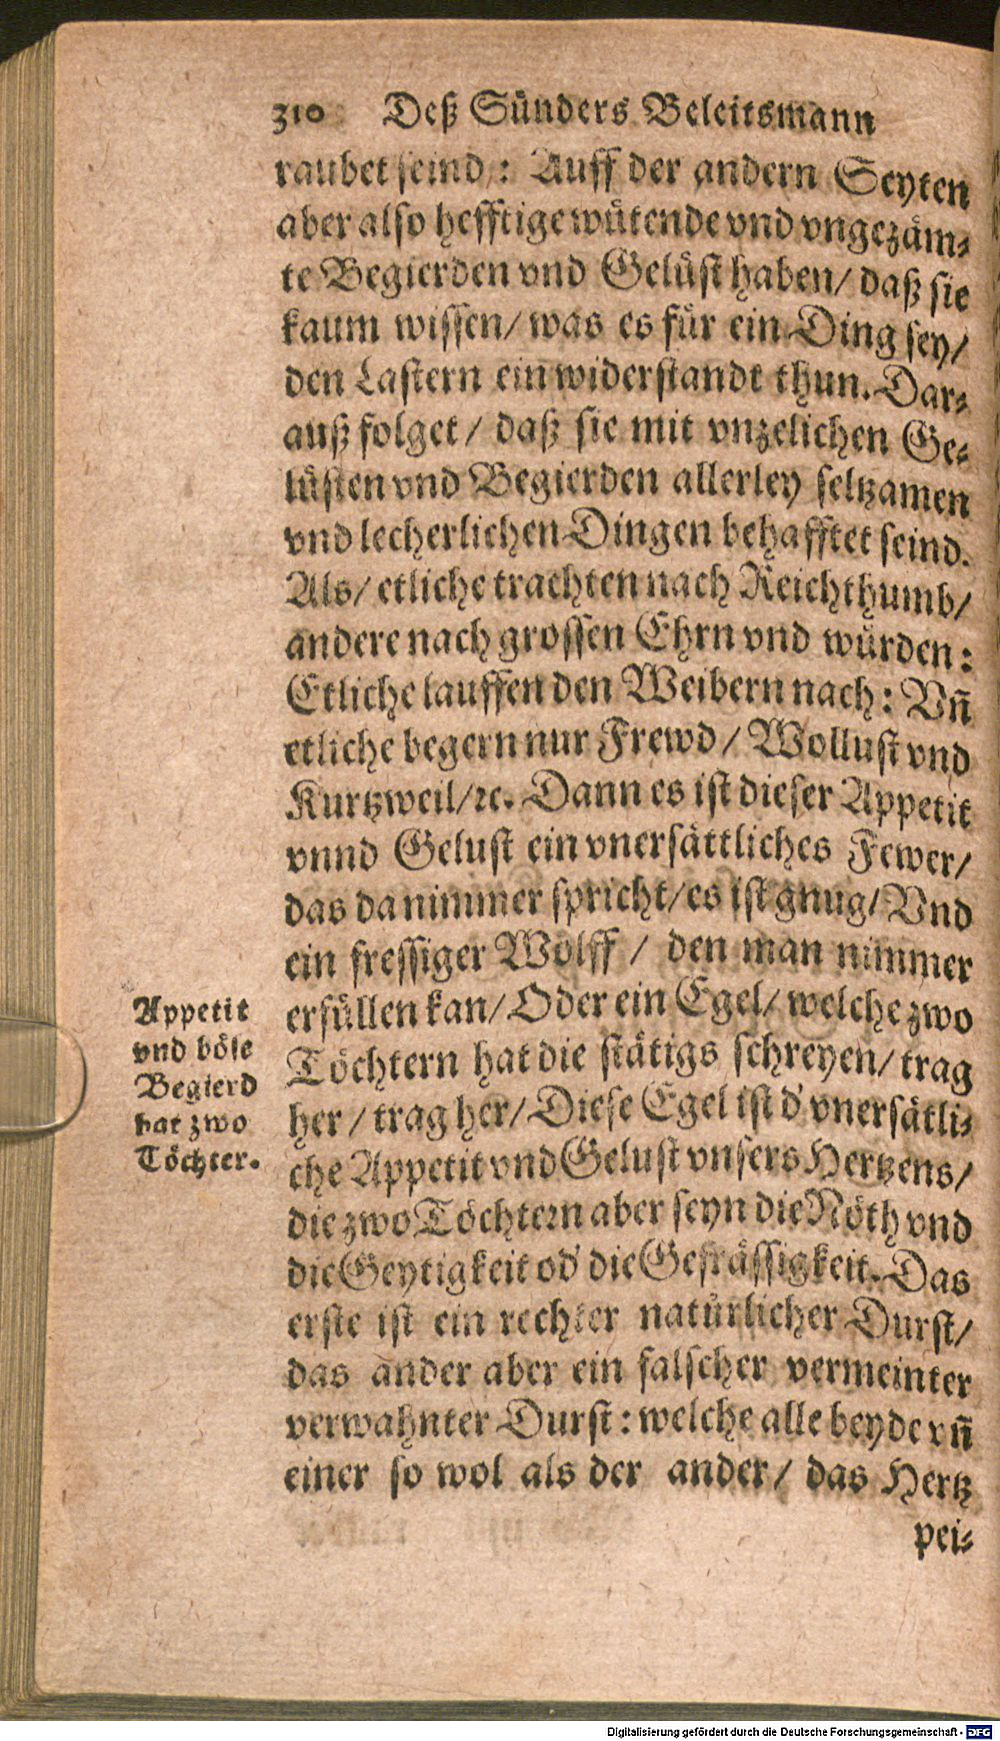 310 Deß Sünders Beleitsmann
raubet seind: Auff der andern Seyten
aber also hefftige wütende vnd vngezäm-
te Begierden vnd Gelüst haben/ daß sie
kaum wissen/ was es für ein Ding sey/
den Lastern ein widerstandt thun. Dar-
auß folget/ daß sie mit vnzelichen Ge-
lüsten vnd Begierden allerley seltzamen
vnd lecherlichen Dingen behafftet seind.
Als/ etliche trachten nach Reichthumb/
andere nach grossen Ehrn vnd würden:
Etliche lauffen den Weibern nach: Vñ
etliche begern nur Frewd/ Wollust vnd
Kurtzweil/ ꝛc. Dann es ist dieser Appetit
vnnd Gelust ein vnersättliches Fewer/
das da nimmer spricht/ es ist gnug/ Vnd
ein fressiger Wolff/ den man nimmer
erfüllen kan/ Oder ein Egel/ welche zwo
Töchtern hat die stätigs schreyen/ trag
her/ trag her/ Diese Egel ist d' vnersätli-
che Appetit vnd Gelust vnsers Hertzens/
die zwo Töchtern aber seyn die Nöth vnd
die Geytigkeit od' die Gefrässigkeit. Das
erste ist ein rechter natürlicher Durst/
das ander aber ein falscher vermeinter
verwahnter Durst: welche alle beyde vñ
einer so wol als der ander/ das Hertz
pei-
Appetit
vnd böse
Begierd
hat zwo
Töchter.
Digitalisierung gefördert durch die Deutsche Forschungsgemeinschaft - DFG